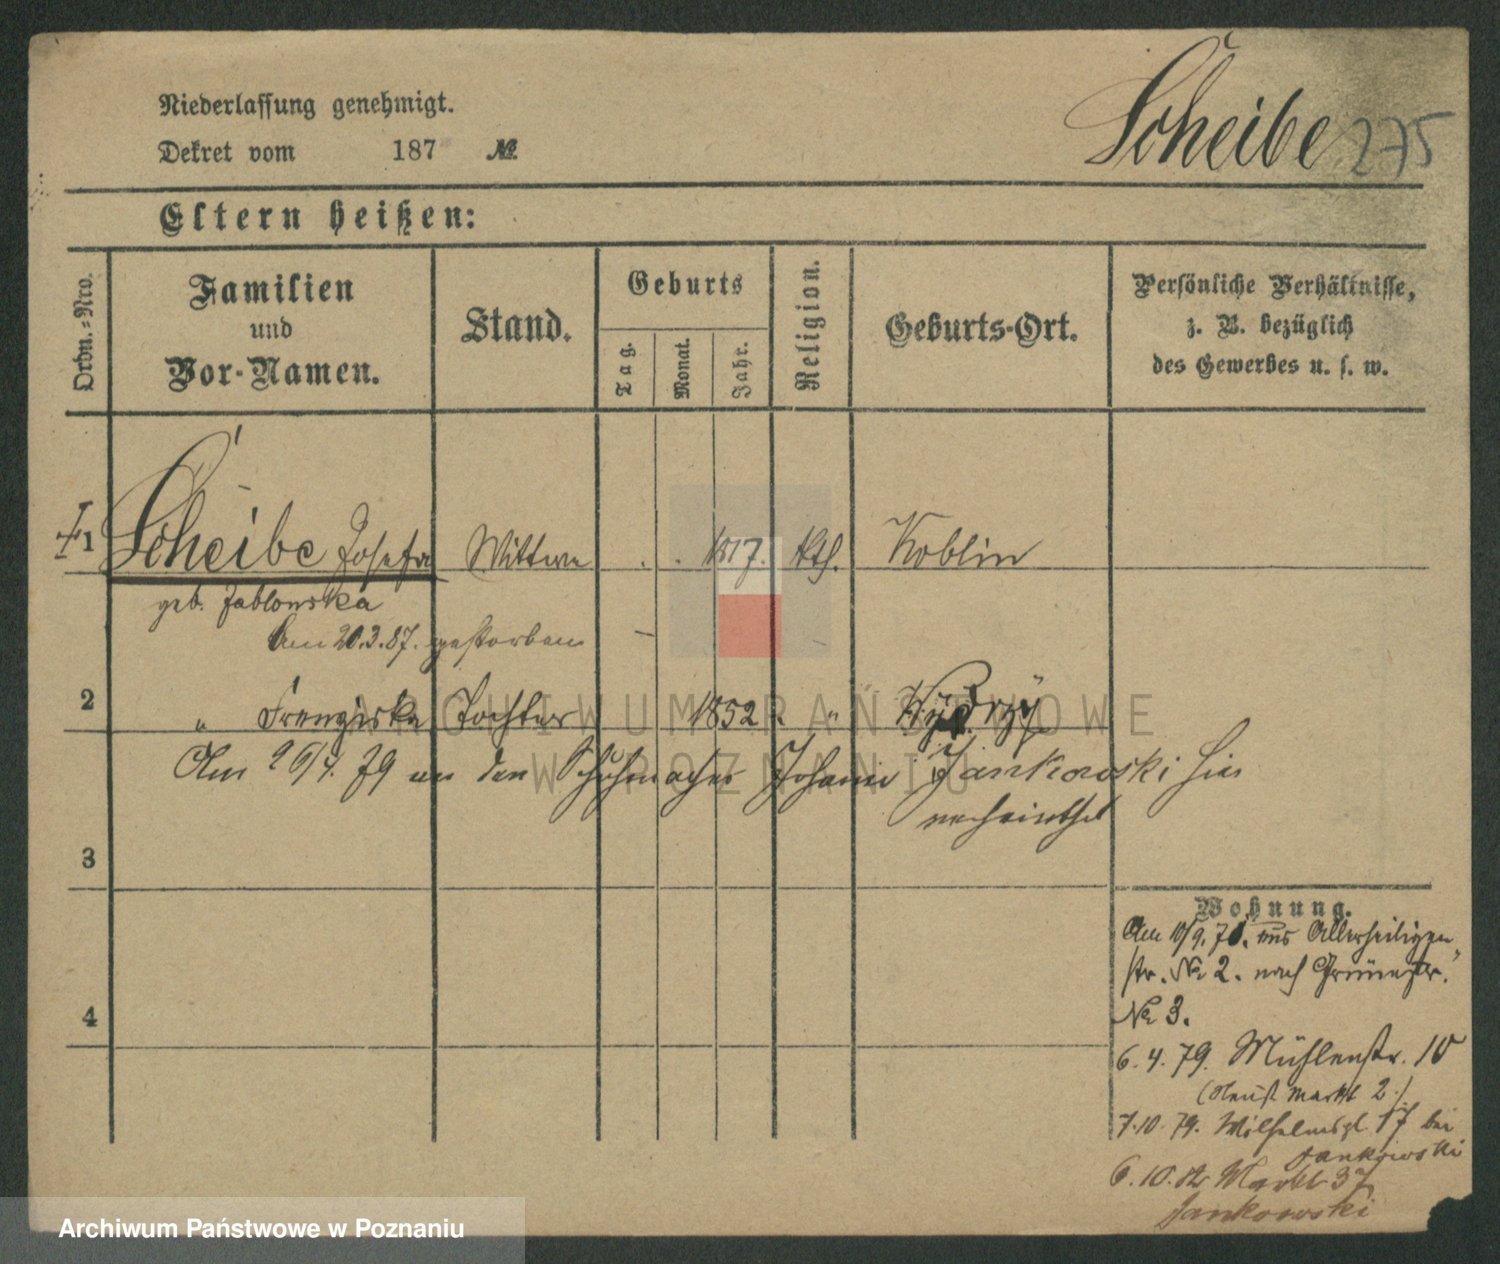 Niederlassung genehmigt.
Dekret vom 187 №
Scheibe 275
Eltern heißen:
Ordn.-Nro.
Familien
und
Vor-Namen.
Stand.
Geburts
Tag.
Monat.
Jahr.
Religion.
Geburts-Ort.
Persönliche Verhältnisse,
z. B. bezüglich
des Gewerbes u. s. w.
1 Scheibe Josefa Wittwe 1817. kth. Koblin
geb. Jablonska
Am 20.3.87. gestorben
2 " Franziska Tochter 1852 "
Am 26/4. 79 an den Schuhmacher Johann Jankowski hier
verheirathet
3
4
Wohnung.
Am 10/9. 78. aus Allerheiligen
str. № 2. nach Grünestr.
№ 3.
6. 4. 79. Mühlenstr. 10
(Neust Markt 2.)
7.10. 79. Wilhelmspl. 17 bei
Jankowski
6. 10. 82 Markt 37
Jankowski
ARCHIWUM PAŃSTWOWE
W POZNANIU
Archiwum Państwowe w Poznaniu